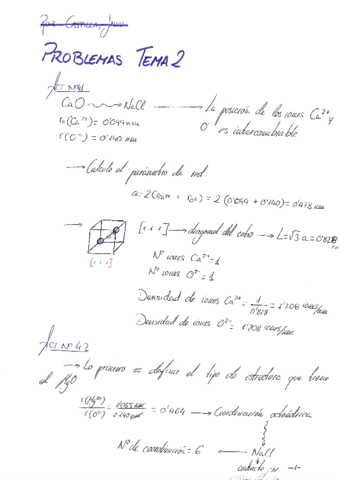 PROBLEMAS TEMA 2
Act Nº41
CaO → NaCl → La posición de los iones Ca²⁺ y
r(Ca²⁺) = 0'099 nm O⁻ es intercambiable
r(O²⁻) = 0'140 nm
→ Calculo el parámetro de red:
a = 2(rCa²⁺ + rO²⁻) = 2(0'099 + 0'140) = 0'478 nm
→ [111] → diagonal del cubo → L = √3 a = 0'828
[111]
Nº iones Ca²⁺ = 1
Nº iones O²⁻ = 1
Densidad de iones Ca²⁺ = 1/0'828 = 1'208 iones/nm
Densidad de iones O²⁻ = 1'208 iones/nm
Act Nº 42
→ Lo primero es definir el tipo de estructura que
el MgO
r(Mg²⁺)/r(O²⁻) = 0'065 nm/0'140 nm = 0'464 → Coordinación octaédrica
Nº de coordinación = 6 ← NaCl